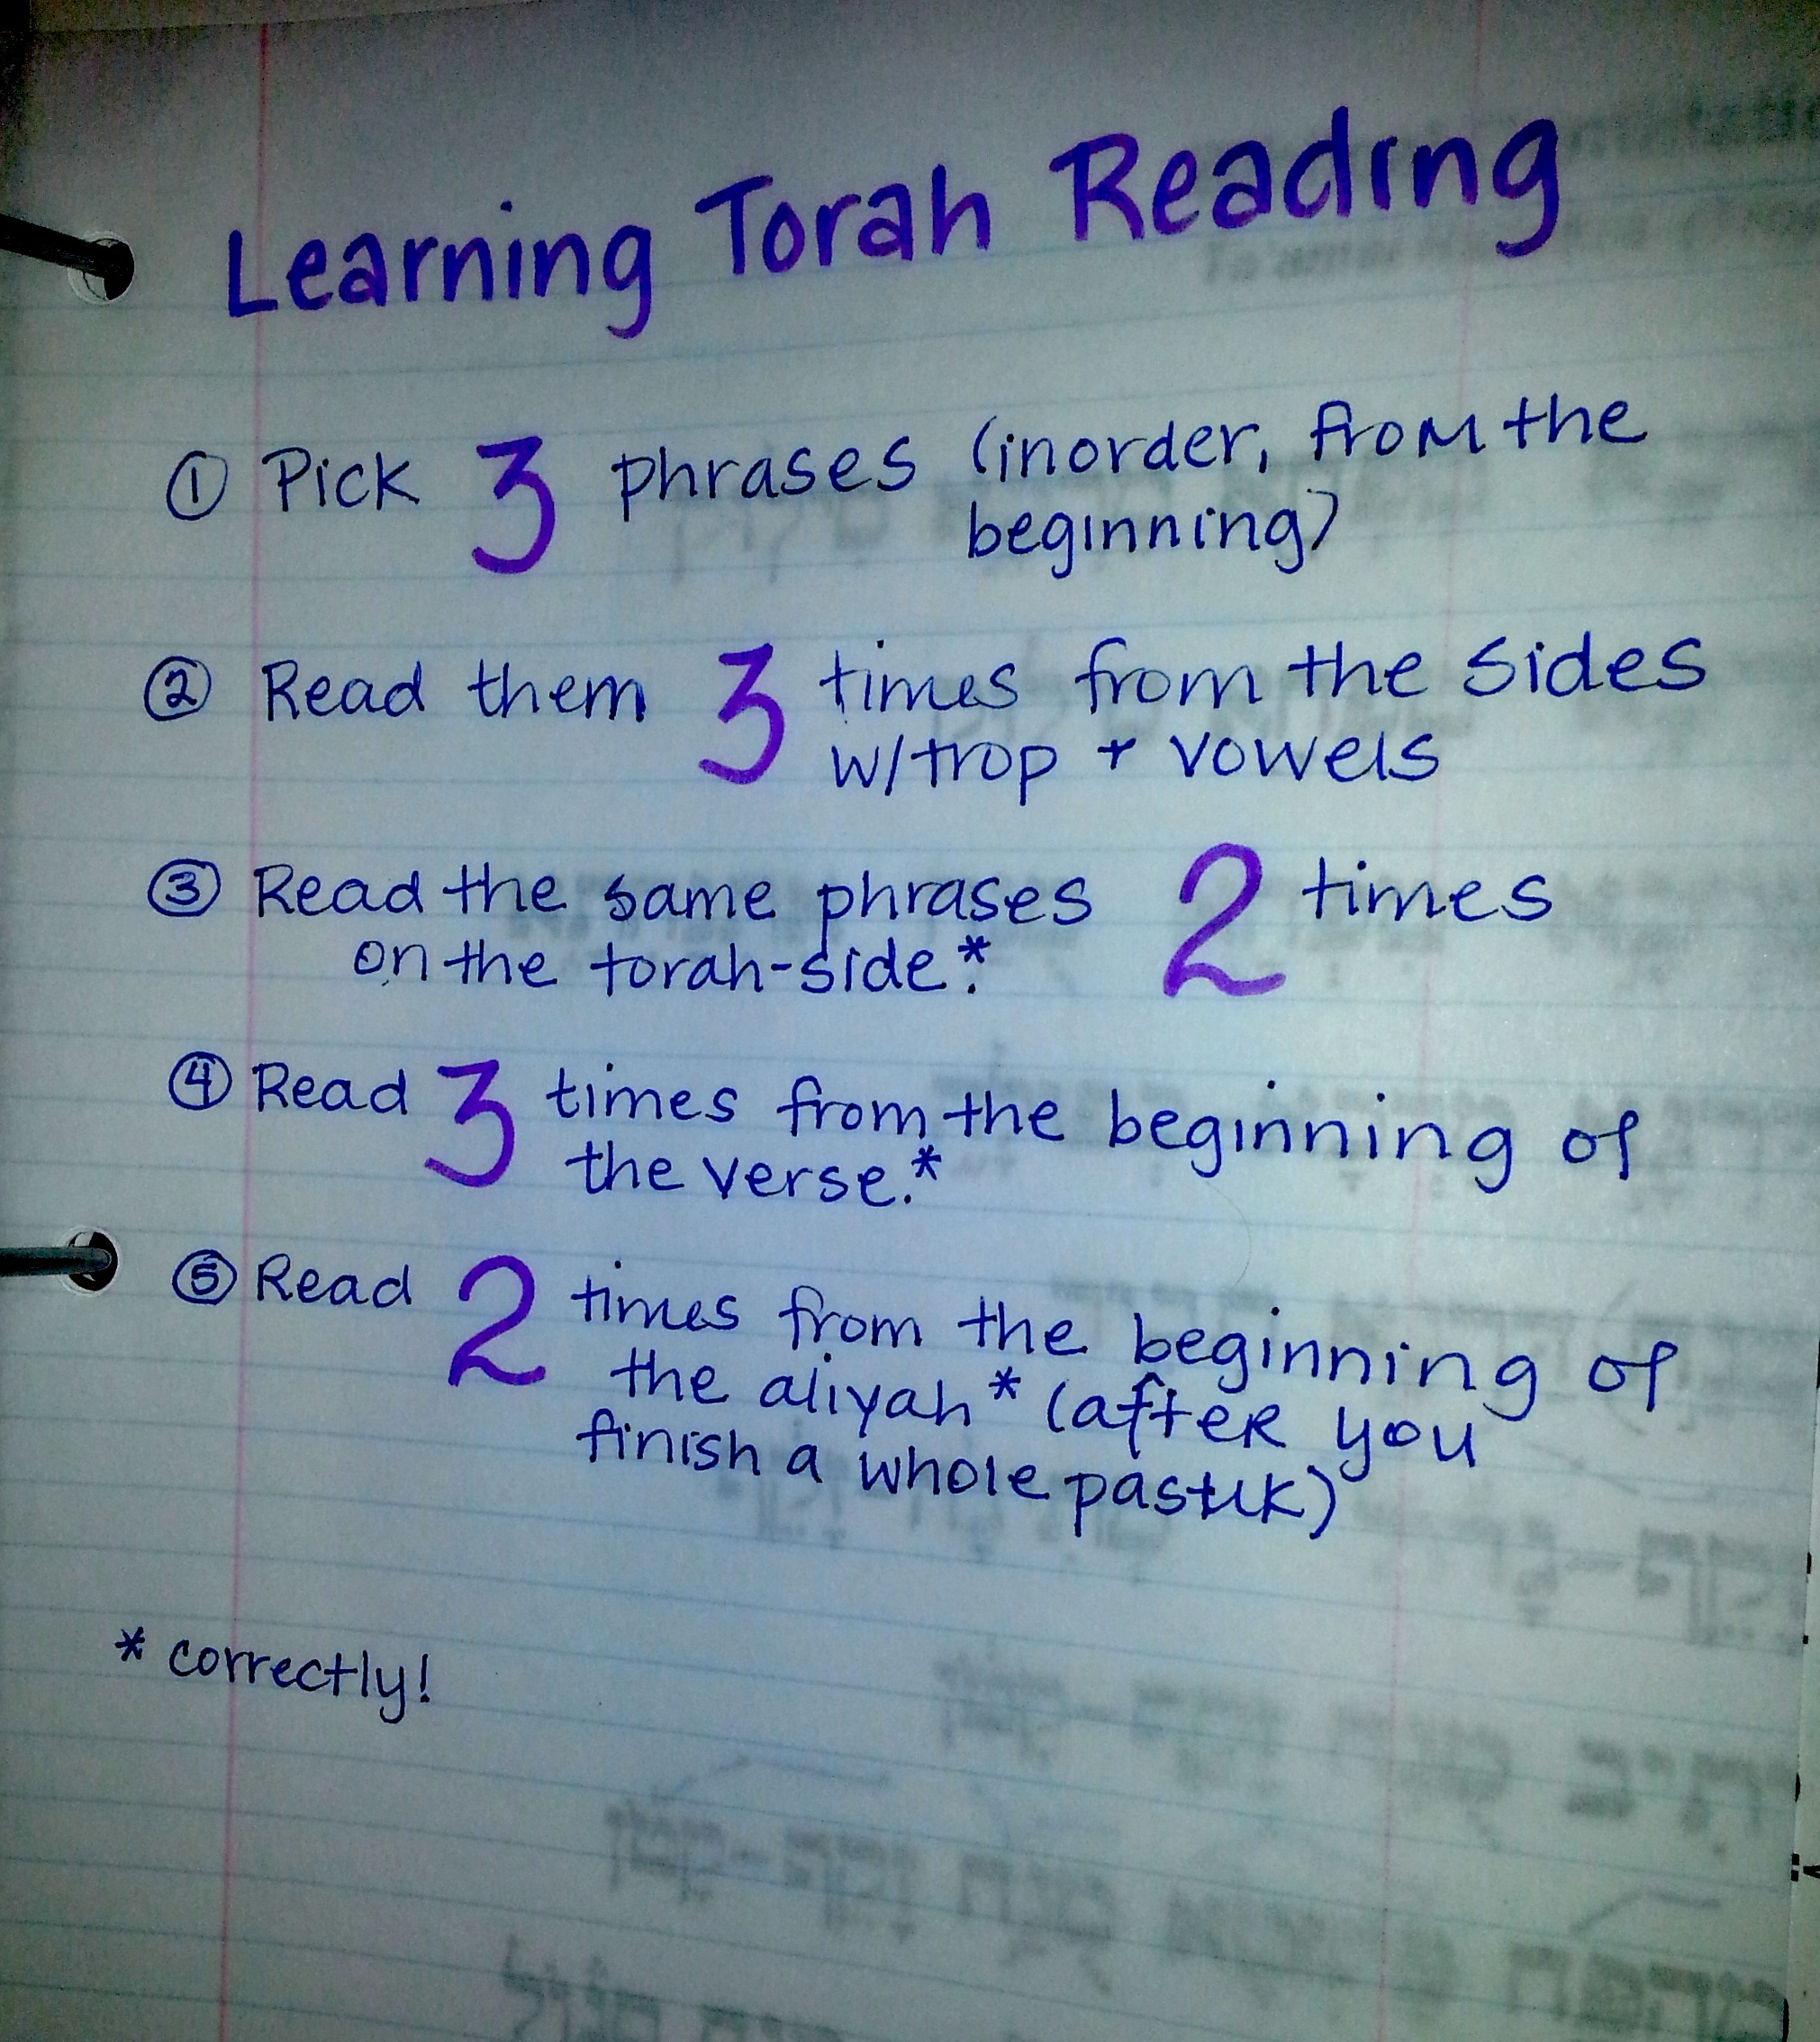 Learning Torah Reading
① Pick 3 phrases (in order, from the
beginning)
② Read them 3 times from the sides
w/trop + vowels
③ Read the same phrases 2 times
on the torah-side.*
④ Read 3 times from the beginning of
the verse.*
⑤ Read 2 times from the beginning of
the aliyah* (after you
finish a whole pastuk)
* correctly!